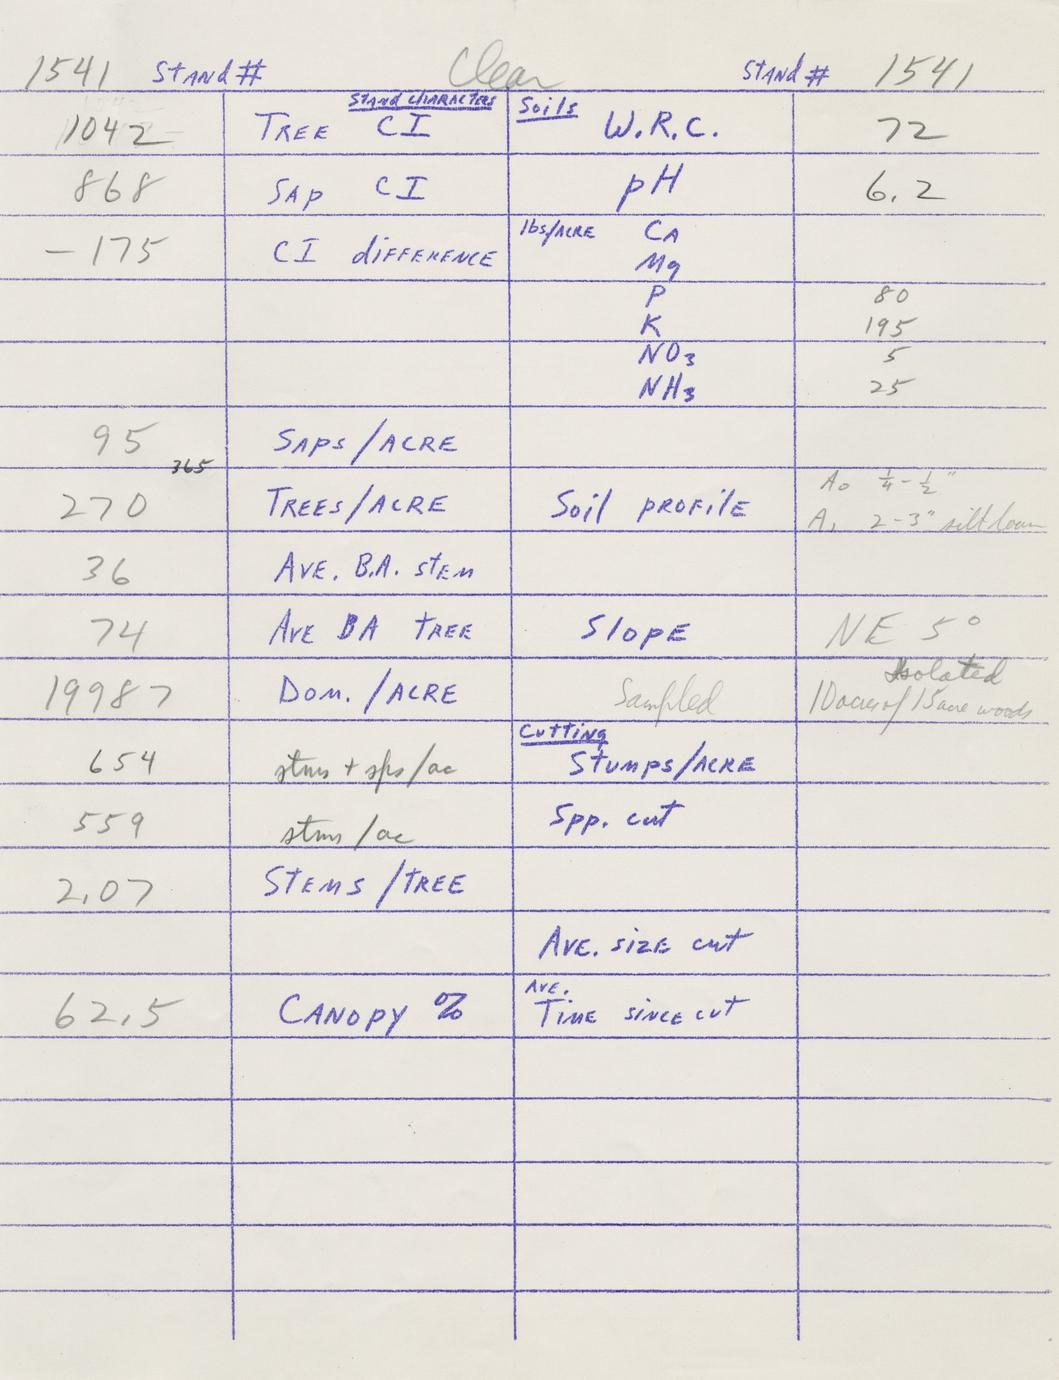 1541 Stand # Clear Stand # 1541
Stand Characters Soils
1042 Tree CI W.R.C. 72
868 Sap CI pH 6.2
-175 CI difference lbs/Acre Ca
Mg
P 80
K 195
NO3 5
NH3 25
95 Saps/Acre
365
270 Trees/Acre Soil profile A0 1/4 - 1/2"
A1 2-3" silt loam
36 Ave. B.A. stem
74 Ave BA tree Slope NE 5°
19987 Dom./Acre Sampled Isolated
10 acres of 15 acre woods
Cutting
654 stms + sps/ac Stumps/Acre
559 stms/ac Spp. cut
2.07 Stems/tree
Ave. size cut
62.5 Canopy % Ave. Time since cut